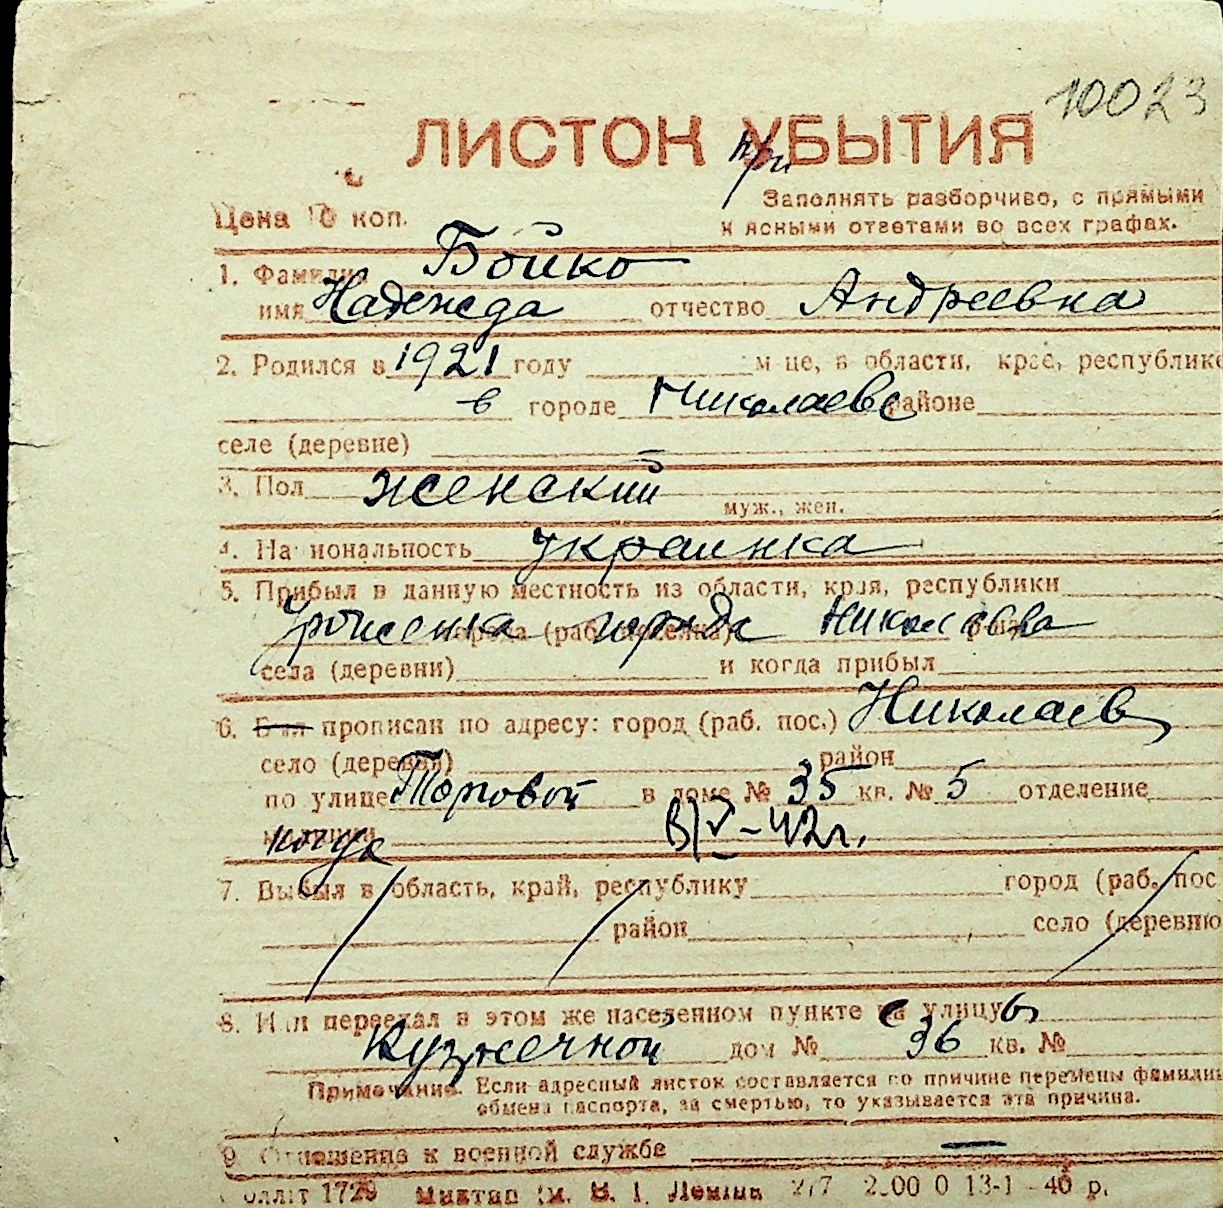 10023
ЛИСТОК УБЫТИЯ
при
Заполнять разборчиво, с прямыми
Цена 10 коп.
и ясными ответами во всех графах.
1. Фамилия Бойко
имя Надежда отчество Андреевна
2. Родился в 1921 году м-це, в области, крае, республике
в городе Николаеве районе
селе (деревне)
3. Пол женский
муж., жен.
4. Национальность украинка
5. Прибыл в данную местность из области, края, республики
Уроженка города Николаева
города (раб. поселка)
села (деревни) и когда прибыл
6. Был прописан по адресу: город (раб. пос.) Николаев
село (деревня) район
по улице Торговой в доме № 35 кв. № 5 отделение
милиции
когда 8/V-42 г.
7. Выбыл в область, край, республику город (раб. пос
район село (деревню
8. Или переехал в этом же населенном пункте на улицу
с улицы
Кузнечной дом № 36 кв. №
Примечание. Если адресный листок составляется по причине перемены фамилии
обмена паспорта, за смертью, то указывается эта причина.
9. Отношение к военной службе —
1729 им. В. І. Леніна 40 р.